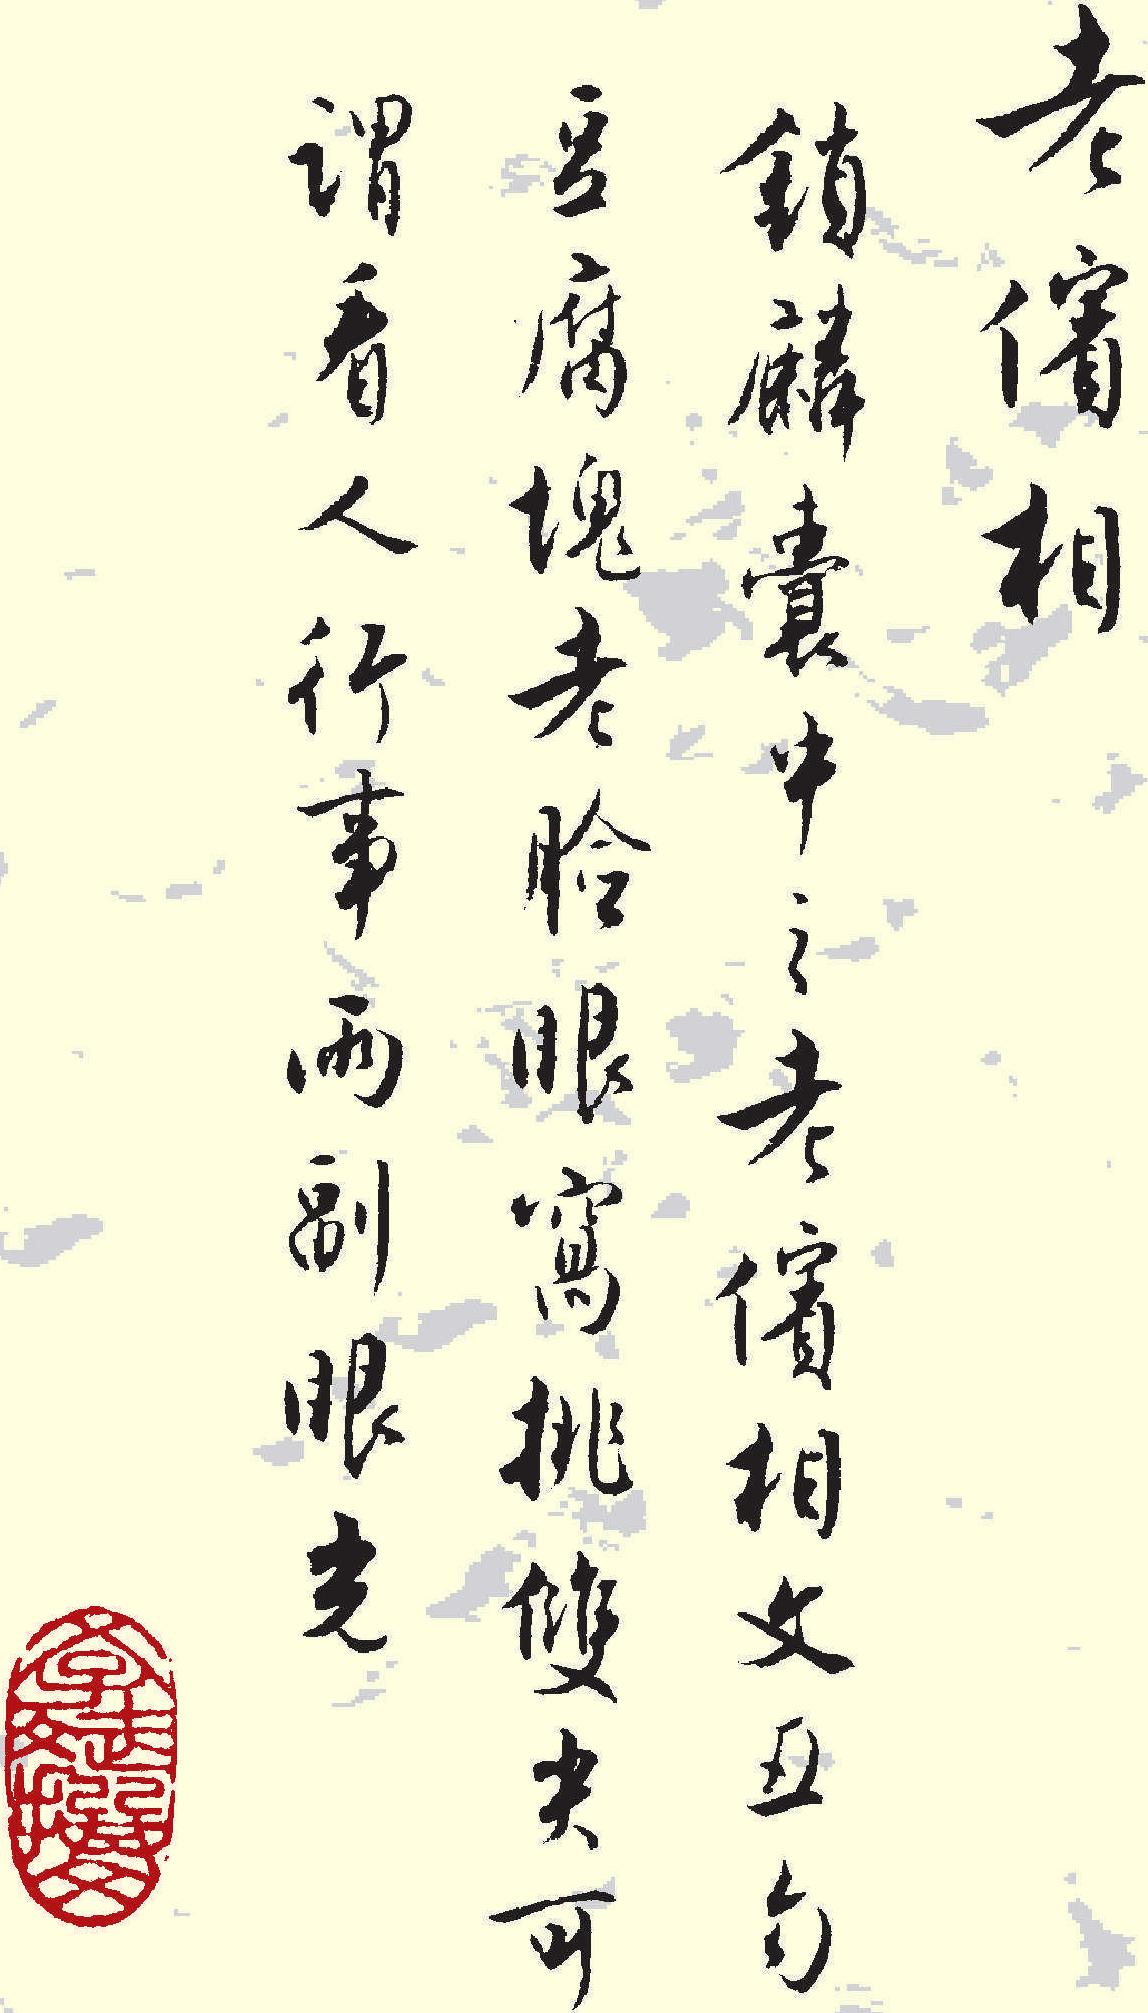 老儐相
鎖麟囊中之老儐相文丑勾
豆腐塊老臉眼窩挑雙尖可
謂看人行事兩副眼光